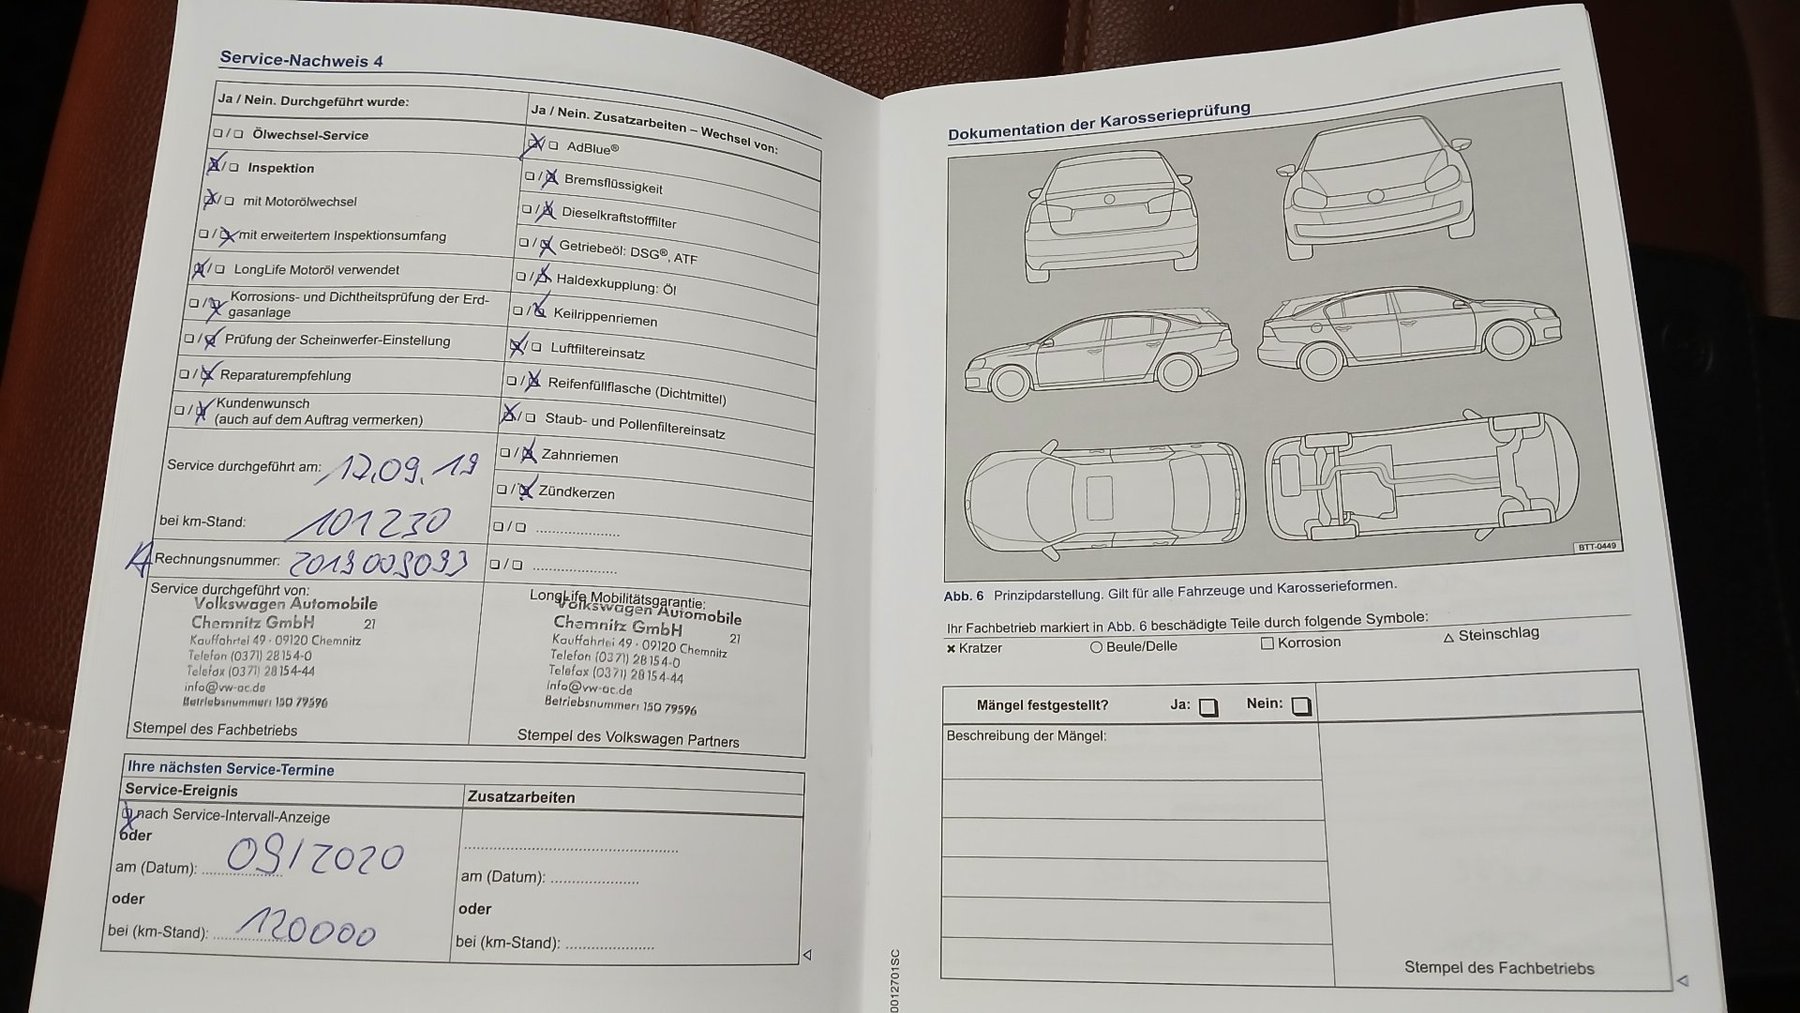 Service-Nachweis 4
Ja / Nein. Durchgeführt wurde:
❏/❏ Ölwechsel-Service
❏/❏ Inspektion
❏/❏ mit Motorölwechsel
❏/❏ mit erweitertem Inspektionsumfang
❏/❏ LongLife Motoröl verwendet
❏/❏ Korrosions- und Dichtheitsprüfung der Erd-
gasanlage
❏/❏ Prüfung der Scheinwerfer-Einstellung
❏/❏ Reparaturempfehlung
❏/❏ Kundenwunsch
(auch auf dem Auftrag vermerken)
Service durchgeführt am: 17.09.19
bei km-Stand: 101230
Rechnungsnummer: 2019009093
Service durchgeführt von:
Volkswagen Automobile
Chemnitz GmbH 21
Kauffahrtei 49 · 09120 Chemnitz
Telefon (0371) 28154-0
Telefax (0371) 28154-44
info@vw-ac.de
Betriebsnummer: 150 79596
Stempel des Fachbetriebs
Ja / Nein. Zusatzarbeiten – Wechsel von:
❏/❏ AdBlue®
❏/❏ Bremsflüssigkeit
❏/❏ Dieselkraftstofffilter
❏/❏ Getriebeöl: DSG®, ATF
❏/❏ Haldexkupplung: Öl
❏/❏ Keilrippenriemen
❏/❏ Luftfiltereinsatz
❏/❏ Reifenfüllflasche (Dichtmittel)
❏/❏ Staub- und Pollenfiltereinsatz
❏/❏ Zahnriemen
❏/❏ Zündkerzen
❏/❏ ....................
❏/❏ ....................
LongLife Mobilitätsgarantie:
Volkswagen Automobile
Chemnitz GmbH 21
Kauffahrtei 49 · 09120 Chemnitz
Telefon (0371) 28154-0
Telefax (0371) 28154-44
info@vw-ac.de
Betriebsnummer: 150 79596
Stempel des Volkswagen Partners
Ihre nächsten Service-Termine
Service-Ereignis
❏ nach Service-Intervall-Anzeige
oder
am (Datum): 09/2020
oder
bei (km-Stand): 120000
Zusatzarbeiten
am (Datum): ....................
oder
bei (km-Stand): ....................
Dokumentation der Karosserieprüfung
BTT-0449
Abb. 6 Prinzipdarstellung. Gilt für alle Fahrzeuge und Karosserieformen.
Ihr Fachbetrieb markiert in Abb. 6 beschädigte Teile durch folgende Symbole:
✖ Kratzer ○ Beule/Delle □ Korrosion △ Steinschlag
Mängel festgestellt? Ja: ❏ Nein: ❏
Beschreibung der Mängel:
Stempel des Fachbetriebs
0012701SC